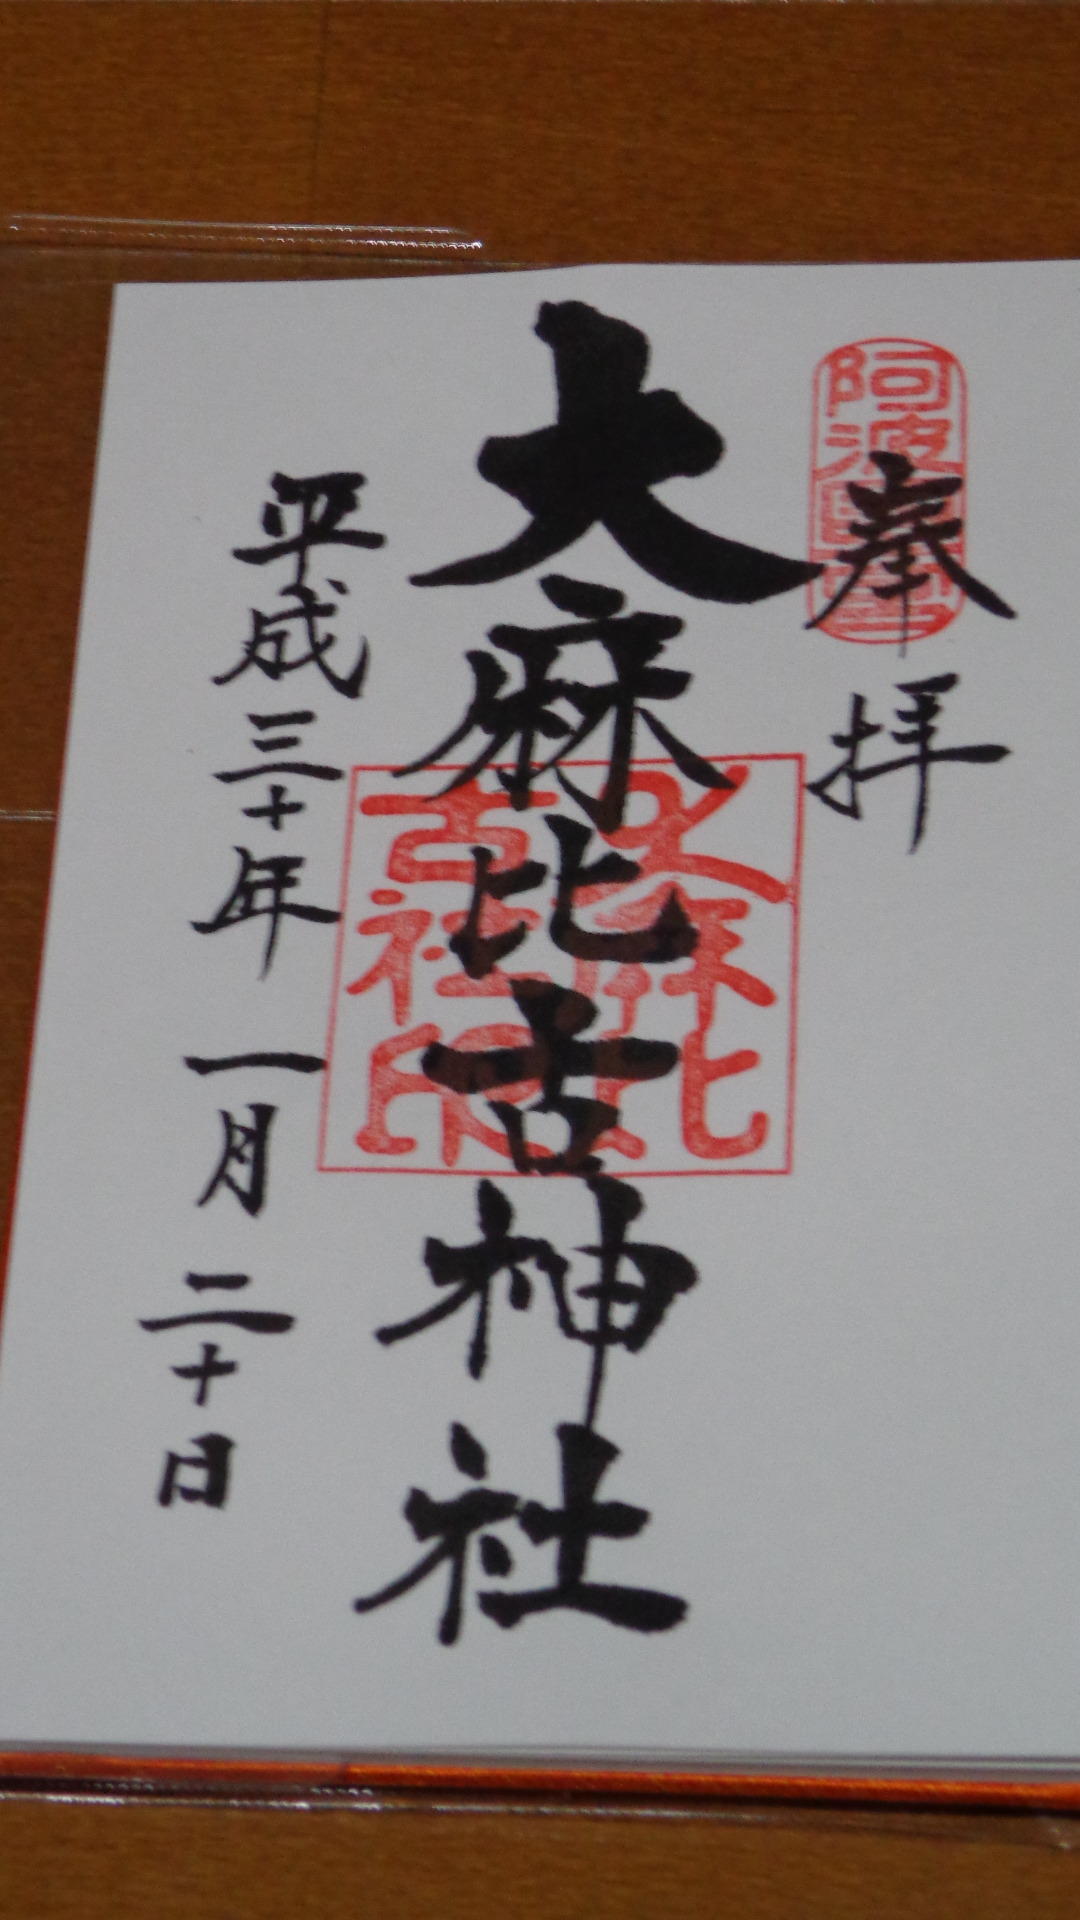 奉拝
阿波國一宮
大麻比古神社
大麻比古社印
平成三十年一月二十日